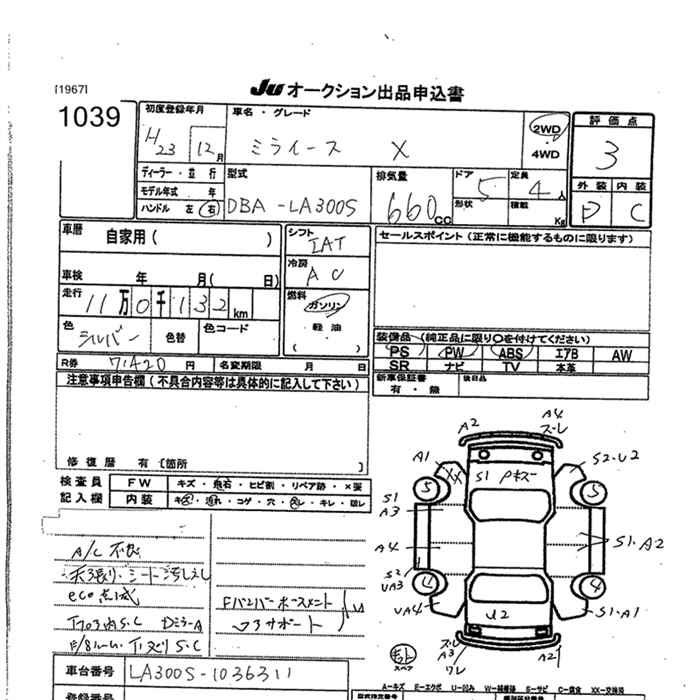 [1967]
JU オークション出品申込書
1039
初度登録年月
H23 12月
車名・グレード
ミライース X
2WD
・4WD
評価点
3
ディーラー・並行
モデル年式 年
ハンドル 左 右
型式
DBA-LA300S
排気量
660CC
ドア 5
形状
定員 4人
積載 Kg
外装 内装
D C
車歴 自家用 ( )
シフト
IAT
冷房
AC
セールスポイント (正常に機能するものに限ります)
車検 年 月( 日)
走行 11万0千132km
燃料
ガソリン
軽油
( )
色 シルバー
色替
色コード
装備品 (純正品に限り○を付けてください)
PS PW ABS エアB AW
SR ナビ TV 本革
R券 7420円
名変期限 月 日
新車保証書
有・無
後日品
注意事項申告欄 (不具合内容等は具体的に記入して下さい)
修復歴 有 〔箇所
検査員
記入欄
FW キズ・飛石・ヒビ割・リペア跡・×要
内装 キズ・汚れ・コゲ・穴・スレ・キレ・破レ
A/C不良
天張り・シート汚れスレ
eco点滅
Fバンパーホースメント
コアサポート
A2
A4
スレ
A1
XX
S1 Pキズ
S2・U2
5
5
S1
A3
A4
S1・A2
S2
UA3
4
4
UA4
U2
S1・A1
スレ
A3
ワレ
A2
スペア
車台番号 LA300S-1036311
登録番号
A-キズ E-エクボ U-凹み W-補修跡 S-サビ C-腐食 XX-交換済